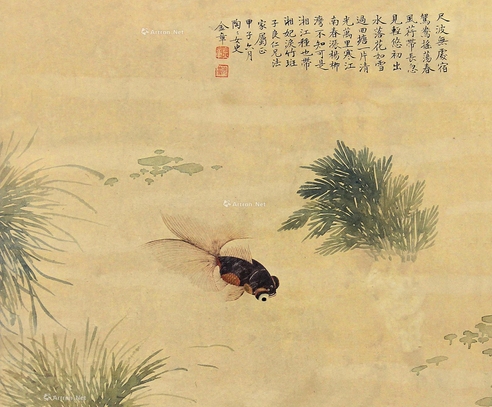 尺波無處宿
鴛鴦搖蕩春
風荇帶長忽
見輕悠初出
水落花如雪
過回塘一片清
光萬里寒江
南春漲楊柳
灣不知可是
湘江種也帶
湘妃淚竹斑
子良仁兄法
家屬正
甲子六月
陶
金章
Artron.Net
Artron.Net
Artron.Net
Artron.Net